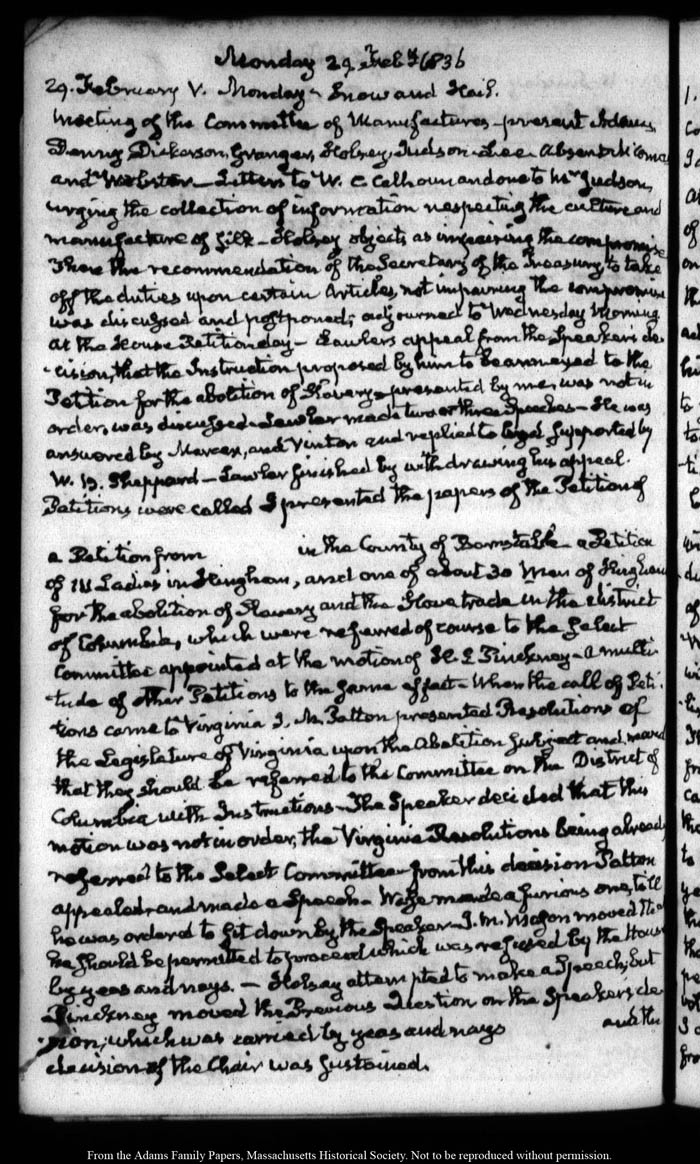 Monday 29 Feby 1836
29. February V. Monday - Snow and Hail.
Meeting of the Committee of Manufactures - present Adams
Denny Dickerson, Granger, Holsey, Judson - Lee absent McComas
and Webster - Letters to W. C Calhoun and one to Mr Judson,
urging the collection of information respecting the culture and
manufacture of Silk - Holsey objects as impairing the compromise
Then the recommendation of the Secretary of the Treasury to take
off the duties upon certain Articles, not impairing the compromise
was discussed and postponed; adjourned to Wednesday Morning
At the House Petition day - Lawlers appeal from the Speakers de-
-cision, that the Instruction proposed by him to be annexed to the
Petition for the abolition of Slavery presented by me, was not in
order, was discussed - Lawler made two or three Speeches - He was
answered by Mercer, and Vinton and replied to supported by
W. B. Sheppard - Lawler finished by withdrawing his appeal.
Petitions were called I presented the papers of the Petition of
a Petition from in the County of Barnstable - a Petition
of 111 Ladies in Hingham, and one of about 30 Men of Hingham
for the abolition of Slavery and the Slave trade in the District
of Columbia, which were referred of course to the Select
Committee appointed at the motion of H. L Pinckney - A multi-
tude of other Petitions to the same effect - When the call of Peti-
tions came to Virginia J. M. Patton presented Resolutions of
the Legislature of Virginia upon the Abolition Subject and moved
that they should be referred to the Committee on the District of
Columbia with Instructions - The Speaker decided that this
motion was not in order, the Virginia Resolutions being already
referred to the Select Committee - from this decision Patton
appealed and made a Speech - Wise made a furious one, till
he was ordered to sit down by the Speaker - T. M. moved that
he should be permitted to proceed which was refused by the House
by yeas and nays. - Holsey attempted to make a Speech, but
Pinckney moved the Previous Question on the Speakers de
sion, which was carried by yeas and nays and the
decision of the Chair was sustained.
From the Adams Family Papers, Massachusetts Historical Society. Not to be reproduced without permission.